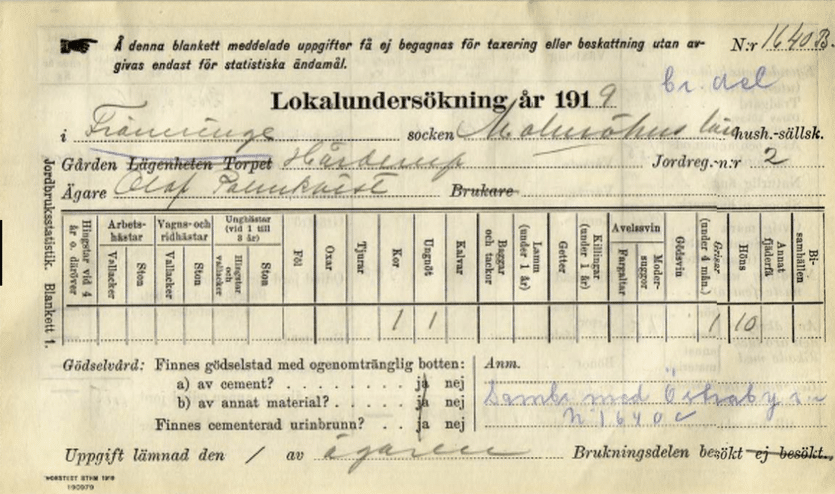 Å denna blankett meddelade uppgifter få ej begagnas för taxering eller beskattning utan av-
givas endast för statistiska ändamål.
N:r 1640 B.
br. del
Lokalundersökning år 1919
i Tranninge socken Malmöhus län hush.-sällsk.
Gården Lägenheten Torpet Jordreg.-n:r 2
Ägare Olof Palmkvist Brukare
Jordbruksstatistik. Blankett 1.
Hingstar vid 4 år o. däröver
Arbetshästar
Vallacker
Ston
Vagns- och ridhästar
Vallacker
Ston
Unghästar (vid 1 till 3 år)
Hingstar och vallacker
Ston
Föl
Oxar
Tjurar
Kor
Ungnöt
Kalvar
Baggar och tackor
Lamm (under 1 år)
Getter
Killingar (under 1 år)
Avelssvin
Fargaltar
Modersuggor
Gödsvin
Grisar (under 4 mån.)
Höns
Annat fjäderfä
Bisamhällen
1 1 1 10
Gödselvård: Finnes gödselstad med ogenomtränglig botten:
a) av cement? ja nej
b) av annat material? ja nej
Finnes cementerad urinbrunn? ja nej
Anm.
Samb. med Östraby
N 1640 c
Uppgift lämnad den / av ägaren Brukningsdelen besökt ej besökt.
NORSTEDT STHM 1919
190979